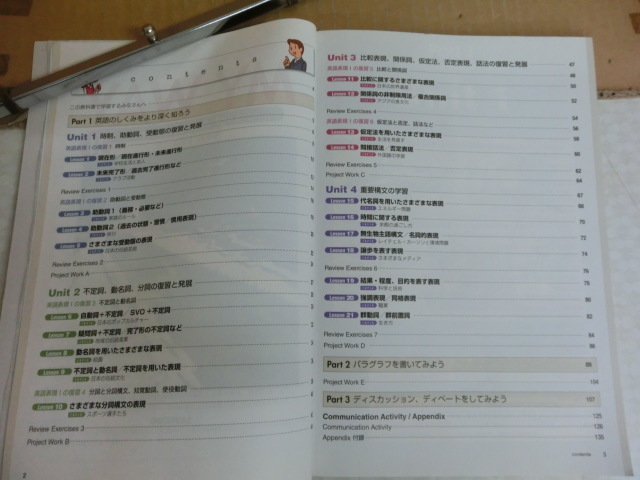 contents
この教科書で学習するみなさんへ
Part 1 英語のしくみをより深く知ろう
Unit 1 時制、助動詞、受動態の復習と発展
英語表現Ⅰの復習 1 時制
Lesson 1 現在形／現在進行形・未来進行形
Lesson 2 未来完了形／過去完了進行形など
クラブ活動
Review Exercises 1
英語表現Ⅰの復習 2 助動詞と受動態
Lesson 3 助動詞 1（義務・必要など）
Lesson 4 助動詞 2（過去の状態・習慣／慣用表現）
Lesson 5 さまざまな受動態の表現
Review Exercises 2
Project Work A
Unit 2 不定詞、動名詞、分詞の復習と発展
英語表現Ⅰの復習 3 不定詞と動名詞
Lesson 6 自動詞＋不定詞／SVO＋不定詞
日本のポップカルチャー
Lesson 7 疑問詞＋不定詞／完了形の不定詞など
Lesson 8 動名詞を用いたさまざまな表現
Lesson 9 不定詞と動名詞／不定詞を用いた表現
日本の伝統文化
英語表現Ⅰの復習 4 分詞と分詞構文、知覚動詞、使役動詞
Lesson 10 さまざまな分詞構文の表現
スポーツ選手たち
Review Exercises 3
Project Work B
2
Unit 3 比較表現、関係詞、仮定法、否定表現、話法の復習と発展 47
英語表現Ⅰの復習 5 比較と関係詞 48
Lesson 11 比較に関するさまざまな表現 50
日本の世界遺産
Lesson 12 関係詞の非制限用法／複合関係詞 52
アジアの食など
Review Exercises 4 54
英語表現Ⅰの復習 6 仮定法と否定、話法など 56
Lesson 13 仮定法を用いたさまざまな表現 58
Lesson 14 間接話法／否定表現 60
外国語の学習
Review Exercises 5 62
Project Work C 64
Unit 4 重要構文の学習 67
Lesson 15 代名詞を用いたさまざまな表現 68
エネルギー問題
Lesson 16 時間に関する表現 70
Lesson 17 無生物主語構文／名詞的表現 72
レイチェル・カーソンと環境問題
Lesson 18 譲歩を表す表現 74
さまざまなメディア
Review Exercises 6 76
Lesson 19 結果・程度、目的を表す表現 78
科学と技術
Lesson 20 強調表現／同格表現 80
職業
Lesson 21 群動詞／群前置詞 82
生き方
Review Exercises 7 84
Project Work D 86
Part 2 パラグラフを書いてみよう 89
Project Work E 104
Part 3 ディスカッション、ディベートをしてみよう 107
Communication Activity / Appendix 125
Communication Activity 126
Appendix 付録 130
contents 3